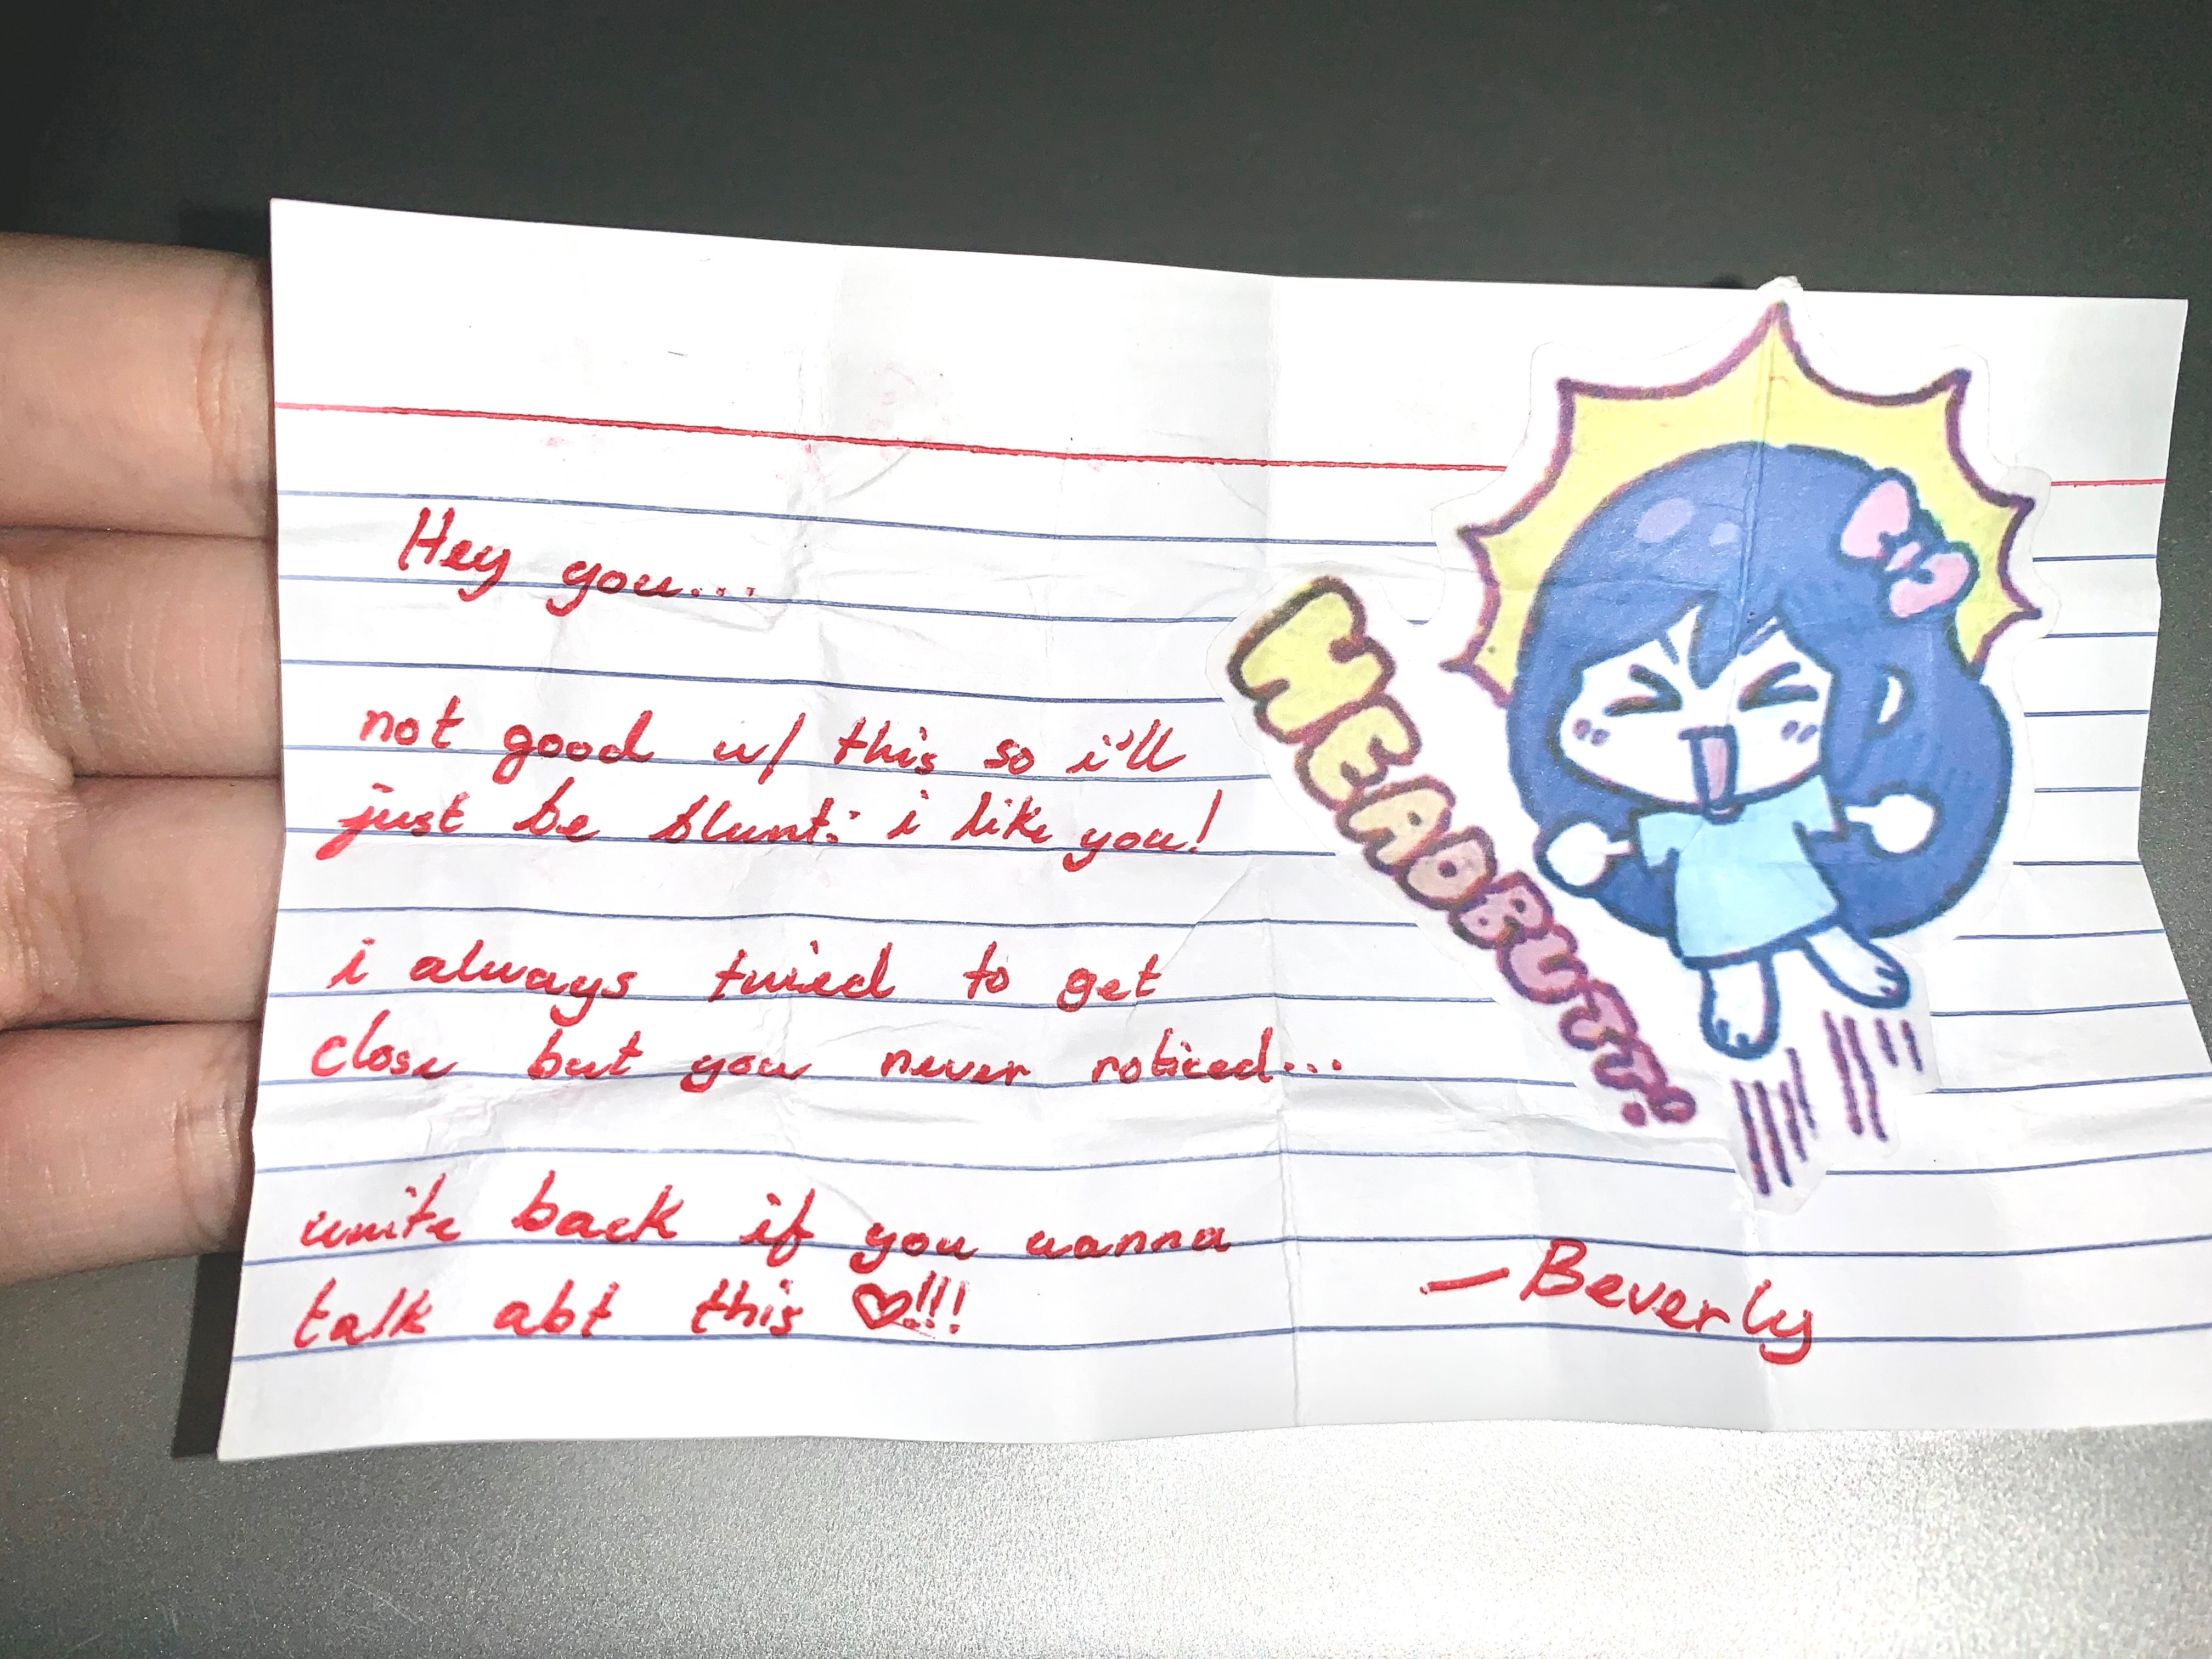 Hey you...
not good w/ this so i'll
just be blunt: i like you!
i always tried to get
close but you never noticed...
write back if you wanna
talk abt this ♡!!!
— Beverly
HEADBUTT!